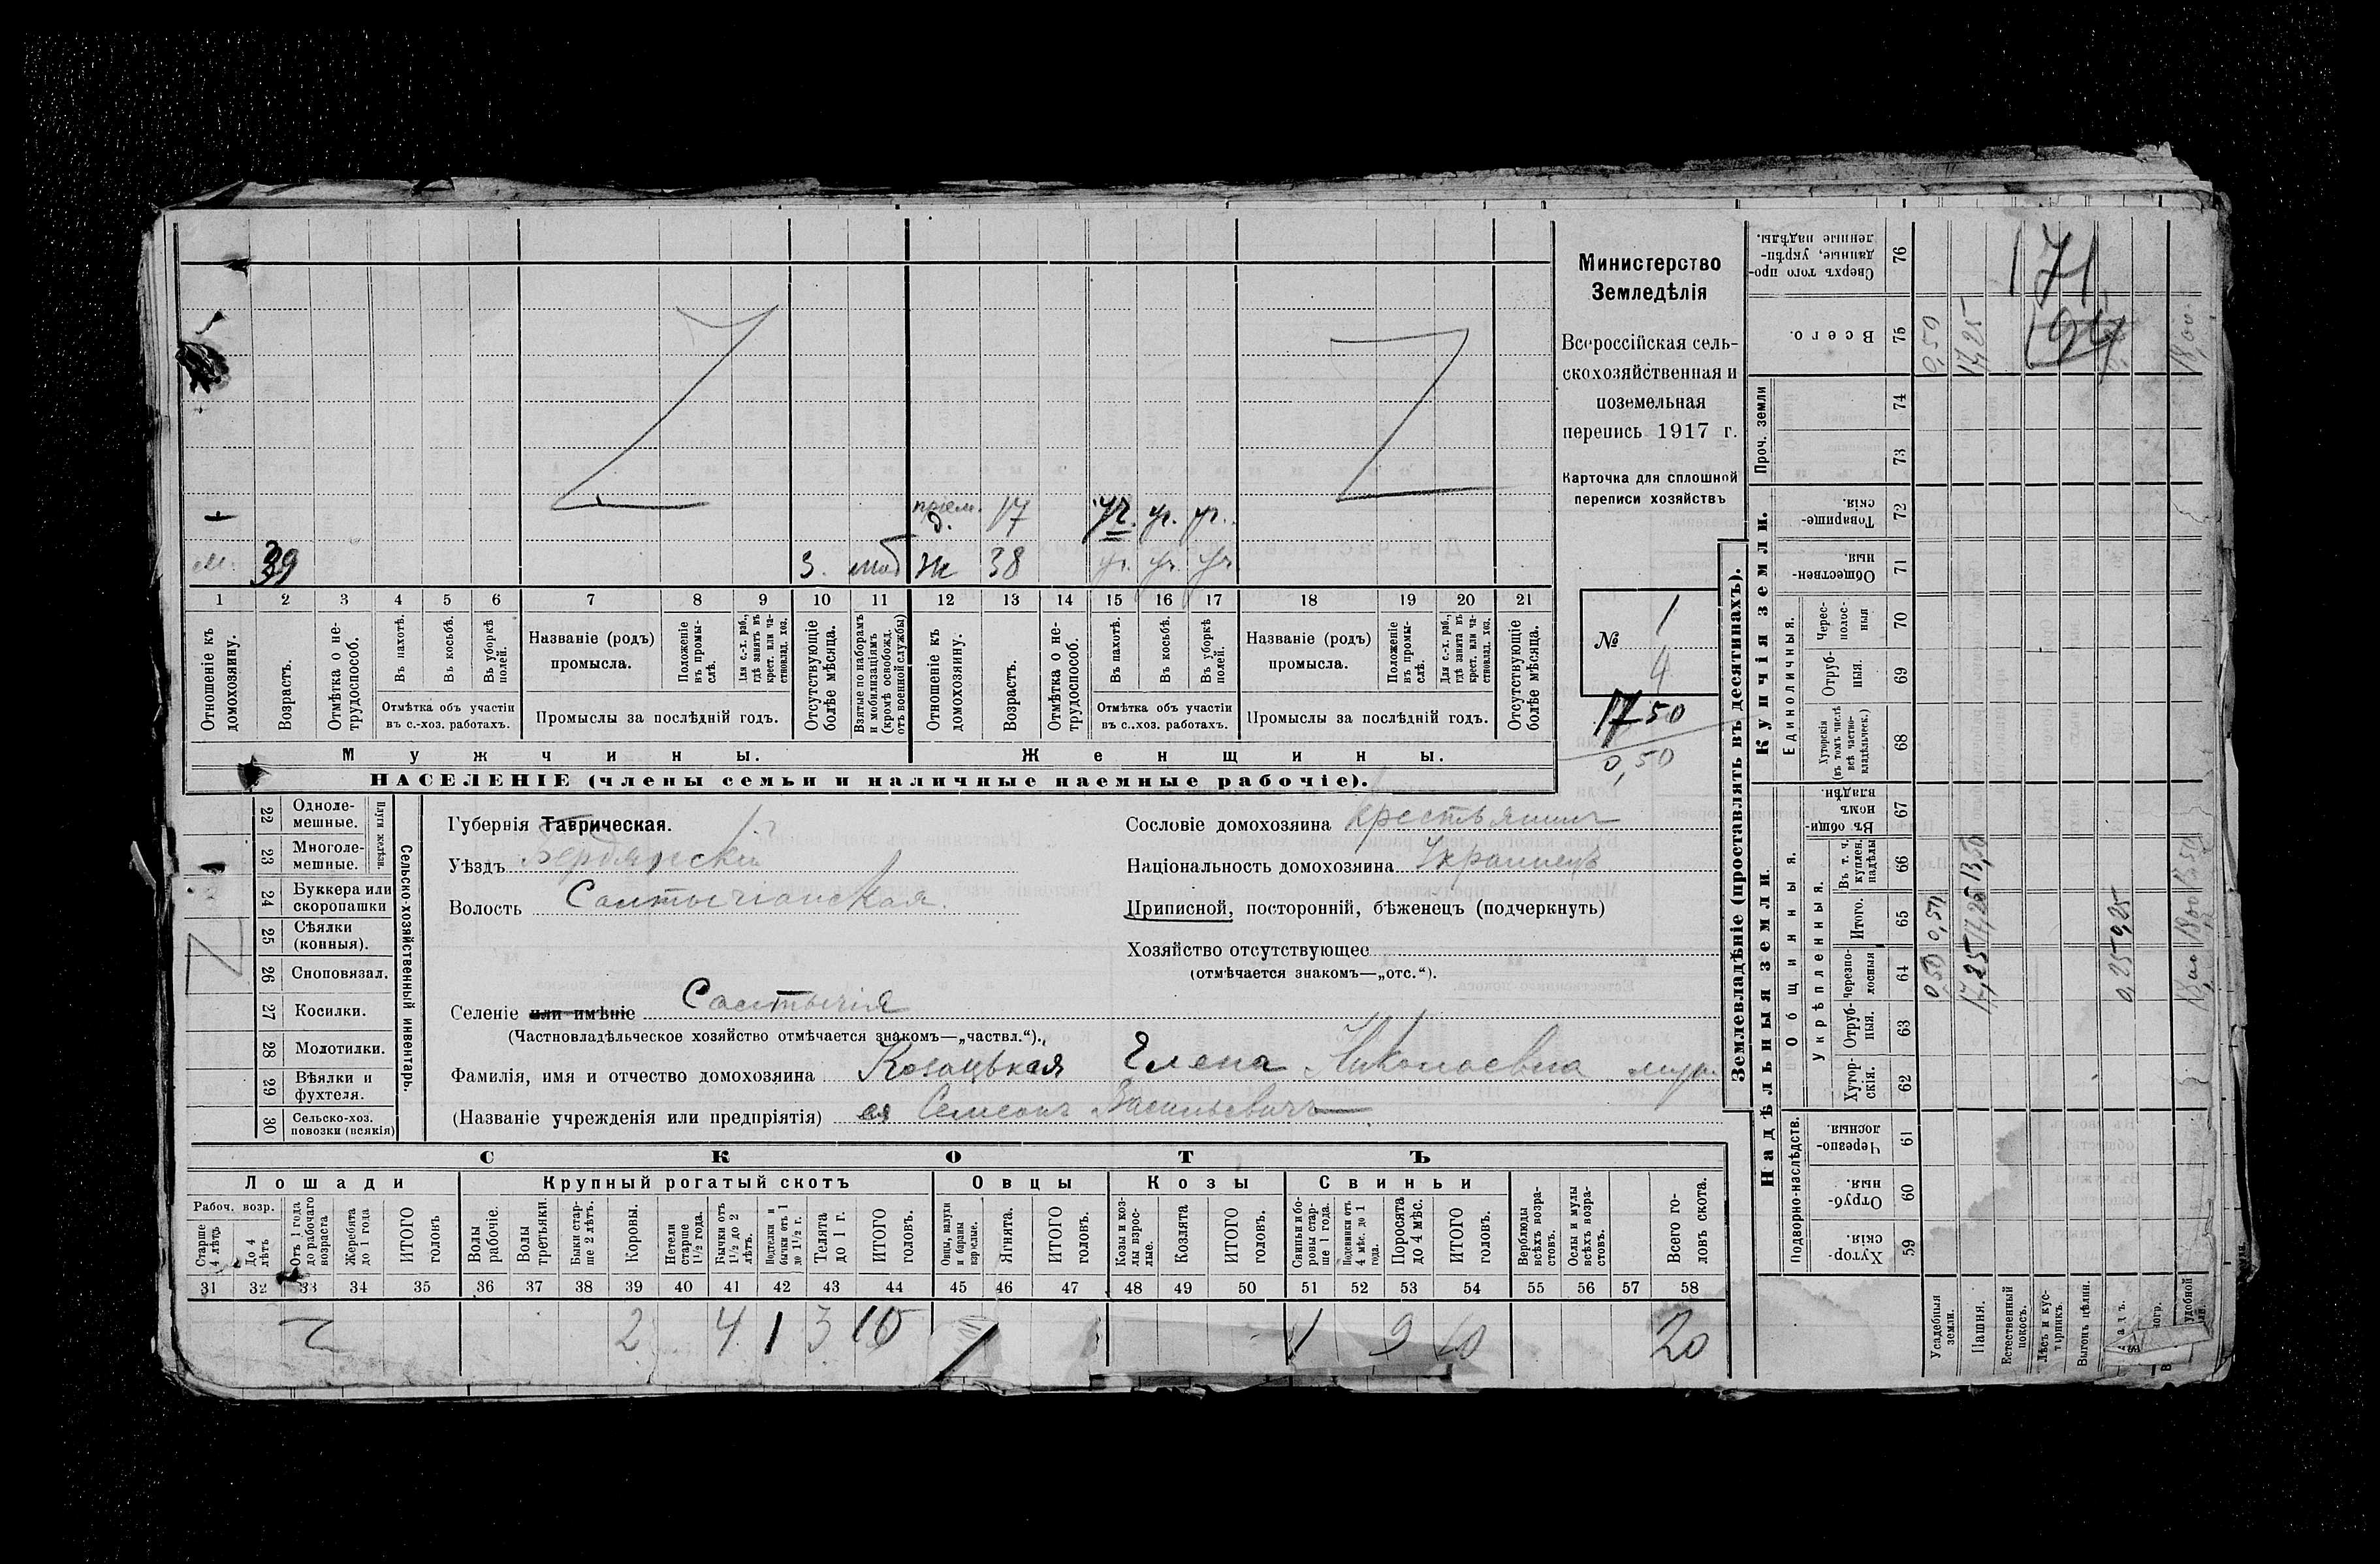 Министерство
Земледѣлія
Всероссійская сель-
скохозяйственная и
поземельная
перепись 1917 г.
Карточка для сплошной
переписи хозяйствъ
№ 1
4
17 50
0,50
прiем.
д. 17 уч. уч. уч.
м. 39 3. моб жн 38 уч. уч. уч
1 2 3 4 5 6 7 8 9 10 11 12 13 14 15 16 17 18 19 20 21
Отношеніе къ домохозяину.
Возрастъ.
Отмѣтка о не-трудоспособ.
Въ пахотѣ.
Въ косьбѣ.
Въ уборкѣ полей.
Отмѣтка объ участіи въ с.-хоз. работахъ.
Названіе (родъ) промысла.
Положеніе въ промы-слѣ.
Для с.-х. раб., гдѣ занятъ въ крест. или ча-стновлад. хоз.
Промыслы за послѣдній годъ.
Отсутствующіе болѣе мѣсяца.
Взятые по наборамъ и мобилизаціямъ (кромѣ освобожд. отъ военной службы)
Отношеніе къ домохозяину.
Возрастъ.
Отмѣтка о не-трудоспособ.
Въ пахотѣ.
Въ косьбѣ.
Въ уборкѣ полей.
Отмѣтка объ участіи въ с..хоз. работахъ.
Названіе (родъ) промысла.
Положеніе въ промы-слѣ.
Для с.-х. раб., гдѣ занята въ крест. или ча-стновлад. хоз.
Промыслы за послѣдній годъ.
Отсутствующіе болѣе мѣсяца.
Мужчины. Женщины.
НАСЕЛЕНІЕ (члены семьи и наличные наемные рабочіе).
22 Одноле-мешные.
23 Многоле-мешные.
Плуги желѣзн.
24 Буккера или скоропашки
25 Сѣялки (конныя).
26 Сноповязал.
27 Косилки.
28 Молотилки.
29 Вѣялки и фухтеля.
30 Сельско-хоз. повозки (всякія)
Сельско-хозяйственный инвентарь.
Губернія Таврическая.
Уѣздъ Бердянскій
Волость Салтычіанская.
Селеніе или имѣніе Салтычія
(Частновладѣльческое хозяйство отмѣчается знакомъ—„частвл.“).
Фамилія, имя и отчество домохозяина Козацькая Елена Николаевна муж.
(Названіе учрежденія или предпріятія) ея Семенъ Васильевичъ
Сословіе домохозяина крестьянинъ
Національность домохозяина Украинецъ
Приписной, посторонній, бѣженецъ (подчеркнуть)
Хозяйство отсутствующее
(отмѣчается знакомъ—„отс.“).
СКОТЪ
Лошади Крупный рогатый скотъ Овцы Козы Свиньи
Рабоч. возр.
Старше 4 лѣтъ
До 4 лѣтъ
Отъ 1 года до рабочаго возраста
Жеребята до 1 года
ИТОГО головъ
Волы рабочіе.
Волы третьяки.
Быки стар-ше 2 лѣтъ.
Коровы.
Нетели старше 1½ года.
Бычки отъ 1½ до 2 лѣтъ.
Подтелки и бычки отъ 1 до 1½ г.
Телята до 1 г.
ИТОГО головъ.
Овцы, валухи и бараны взрослые.
Ягнята.
ИТОГО головъ.
Козы и коз-лы взрос-лые.
Козлята
ИТОГО головъ.
Свиньи и бо-ровы стар-ше 1 года.
Подсвинки отъ 4 мѣс. до 1 года.
Поросята до 4 мѣс.
ИТОГО головъ.
Верблюды всѣхъ возра-стовъ.
Ослы и мулы всѣхъ возра-стовъ.
Всего го-ловъ скота.
31 32 33 34 35 36 37 38 39 40 41 42 43 44 45 46 47 48 49 50 51 52 53 54 55 56 57 58
2 4 1 3 10 1 9 10 20
Землевладѣніе (проставлять въ десятинахъ).
Надѣльныя земли. Купчія земли. Проч. земли
Подворно-наслѣдств.
Общинныя.
Укрѣпленныя.
Единоличныя.
Хутор-скія. 59
Отруб-ныя. 60
Черезпо-лосныя 61
Хутор-скія. 62
Отруб-ныя. 63
Черезпо-лосныя 64
Итого. 65
Въ т. ч. куплен. надѣлы 66
Въ общин-номъ владѣн. 67
Хуторскія (въ томъ числѣ всѣ частно-владѣльческ.) 68
Отруб-ныя. 69
Черес-полос-ныя 70
Обществен-ныя 71
Товарище-скія. 72
73
74
Всего. 75
Сверхъ того про-данные, укрѣп-ленные надѣлы. 76
Усадебныя земли. 0,50 0,50 0,50
Пашня. 17,25 17,25 13,50 17,25
Естественный покосъ.
Лѣсъ и кус-тарникъ.
Выгонъ цѣлин.
0,25 0,25
удобной
18,00 18,00 13,50 18,00
171
194